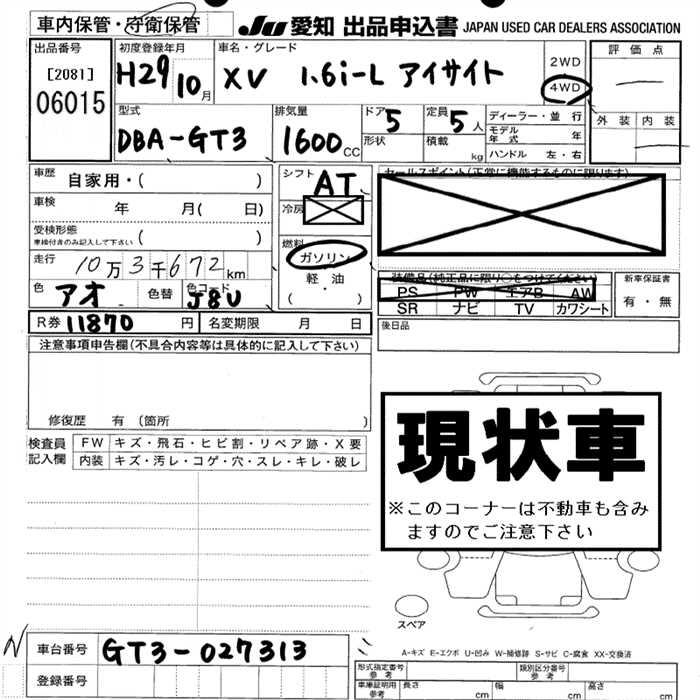 車内保管・守衛保管
JU 愛知 出品申込書 JAPAN USED CAR DEALERS ASSOCIATION
出品番号
[2081]
06015
初度登録年月
H29 10月
車名・グレード
XV 1.6i-L アイサイト
2WD
4WD
評価点
外装 内装
型式
DBA-GT3
排気量
1600cc
ドア 5
形状
定員 5人
積載 kg
ディーラー・並行
モデル年式 年
ハンドル 左・右
車歴 自家用・( )
車検 年 月( 日)
受検形態
車検付きのみ記入して下さい ( )
走行 10万3千672km
色 アオ 色替 色コード J8U
R券 11870円 名変期限 月 日
シフト AT
冷房
燃料
ガソリン
軽油
・( )
セールスポイント(正常に機能するものに限ります)
装備品(純正品に限り○をつけてください)
PS PW エアB AW
SR ナビ TV カワシート
新車保証書
有・無
後日品
注意事項申告欄(不具合内容等は具体的に記入して下さい)
修復歴 有(箇所 )
検査員記入欄
FW キズ・飛石・ヒビ割・リペア跡・X要
内装 キズ・汚レ・コゲ・穴・スレ・キレ・破レ
現状車
※このコーナーは不動車も含み
ますのでご注意下さい
スペア
A-キズ E-エクボ U-凹み W-補修跡 S-サビ C-腐食 XX-交換済
N
車台番号 GT3-027313
登録番号
形式指定番号 参考
類別区分番号 参考
車庫証明用 参考 長さ cm 幅 cm 高さ cm